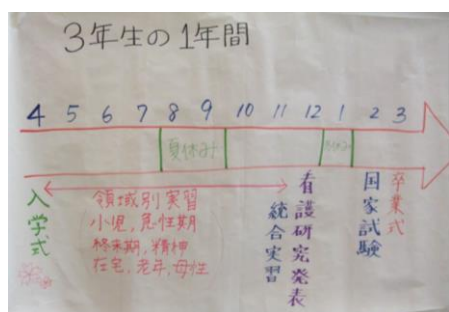 3年生の1年間
4 5 6 7 8 9 10 11 12 1 2 3
夏休み
冬休み
入学式
領域別実習
小児,急性期
終末期,精神
在宅,老年,母性
統合実習
看護研究発表
国家試験
卒業式